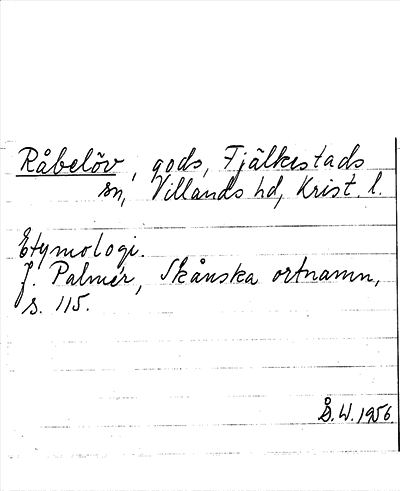 Råbelöv, gods, Fjälkestads
sn, Villands hd, Krist. l.
Etymologi.
J. Palmér, Skånska ortnamn,
s. 115.
Å.W. 1956.